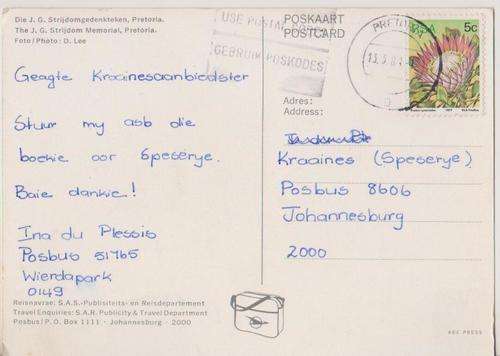 Die J. G. Strijdomgedenkteken, Pretoria.
The J. G. Strijdom Memorial, Pretoria.
Foto/Photo: D. Lee
Geagte Kraainesaanbiedster
Stuur my asb die
boekie oor Speserye.
Baie dankie!
Ina du Plessis
Posbus 51765
Wierdapark
0149
Reisnavrae: S.A.S.-Publisiteits- en Reisdepartement
Travel Enquiries: S.A.R. Publicity & Travel Department
Posbus/P. O. Box 1111 · Johannesburg · 2000
USE POSTAL CODES
GEBRUIK POSKODES
POSKAART
POSTCARD
5c
RSA
Adres:
Address:
Kraaines (Speserye)
Posbus 8606
Johannesburg
2000
ARC PRESS